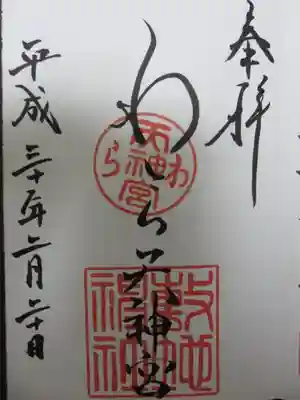 奉拝
わら天神宮
わら
天神宮
敷地
神社
平成三十年二月二十日